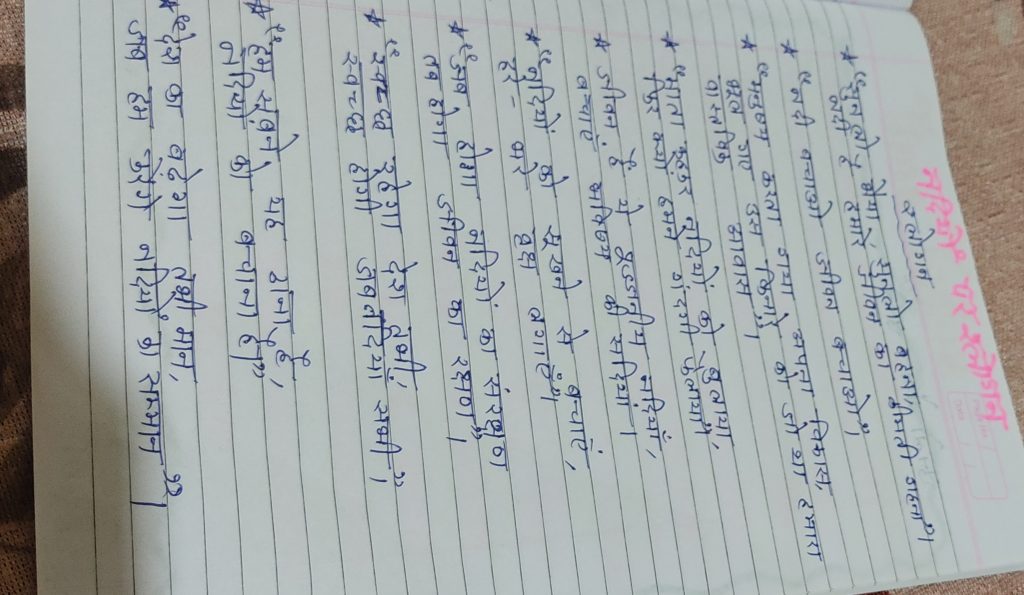 नदियों पर स्लोगन
स्लोगन
★ "सुन लो भैया, सुन लो बहना,
नदी है हमारे जीवन का कीमती गहना"।
★ "नदी बचाओ जीवन बचाओ"।
★ "मनुष्य करता गया अपना विकास,
भूल गए उन किनारे को जो था हमारा
वास्तविक आवास।
★ "माता कहकर नदियों को है बुलाया,
फिर क्यों हमने गंदगी फैलाया"
★ जीवन है ये पूजनीय नदियाँ,
बचाएं भविष्य की सदियां।
★ "नदियों को सूखने से बचाएं,
हर-बारे वृक्ष लगाएँ"।
★ "जब होगा नदियों का संरक्षण
तब होगा जीवन का रक्षण"।
★ "स्वच्छ रहेगा देश तभी,
स्वच्छ होगी जब नदियां सभी",
★ "हम सबने यह ठाना है,
नदियों को बचाना है"
★ "देश का बढ़ेगा तभी मान,
जब हम करेंगे नदियों का सम्मान"।